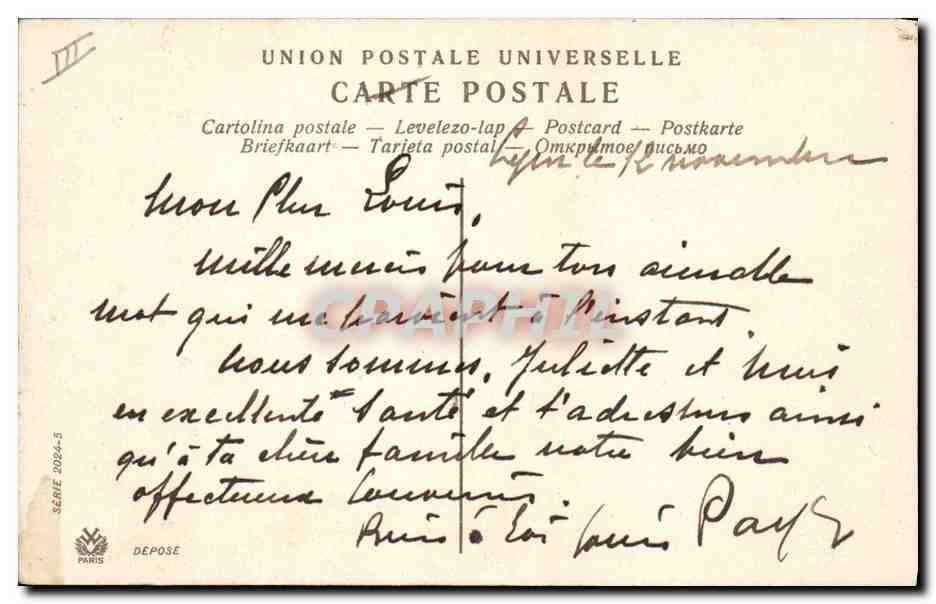 III
UNION POSTALE UNIVERSELLE
CARTE POSTALE
Cartolina postale — Levelezo-lap — Postcard — Postkarte
Briefkaart — Tarjeta postal — Открытое письмо
Lyon le 12 novembre
Mon cher Louis,
Mille mercis pour ton aimable
mot qui me parvient à l'instant.
Nous sommes, Juliette et moi
en excellente santé et t'adressons ainsi
qu'à ta chère famille notre bien
affectueux souvenir.
Bien à toi
CPAPHIL
SÉRIE 2024-5
PARIS
DÉPOSÉ